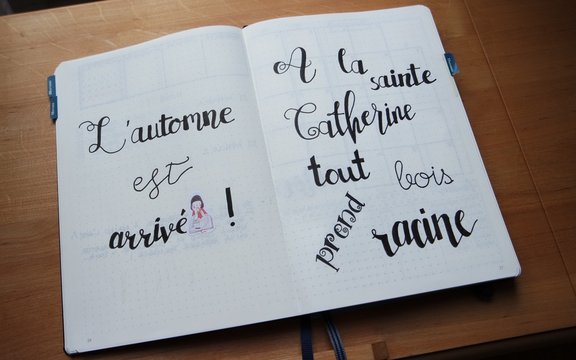 L'automne
est
arrivé !
A la sainte
Catherine
tout bois
prend racine